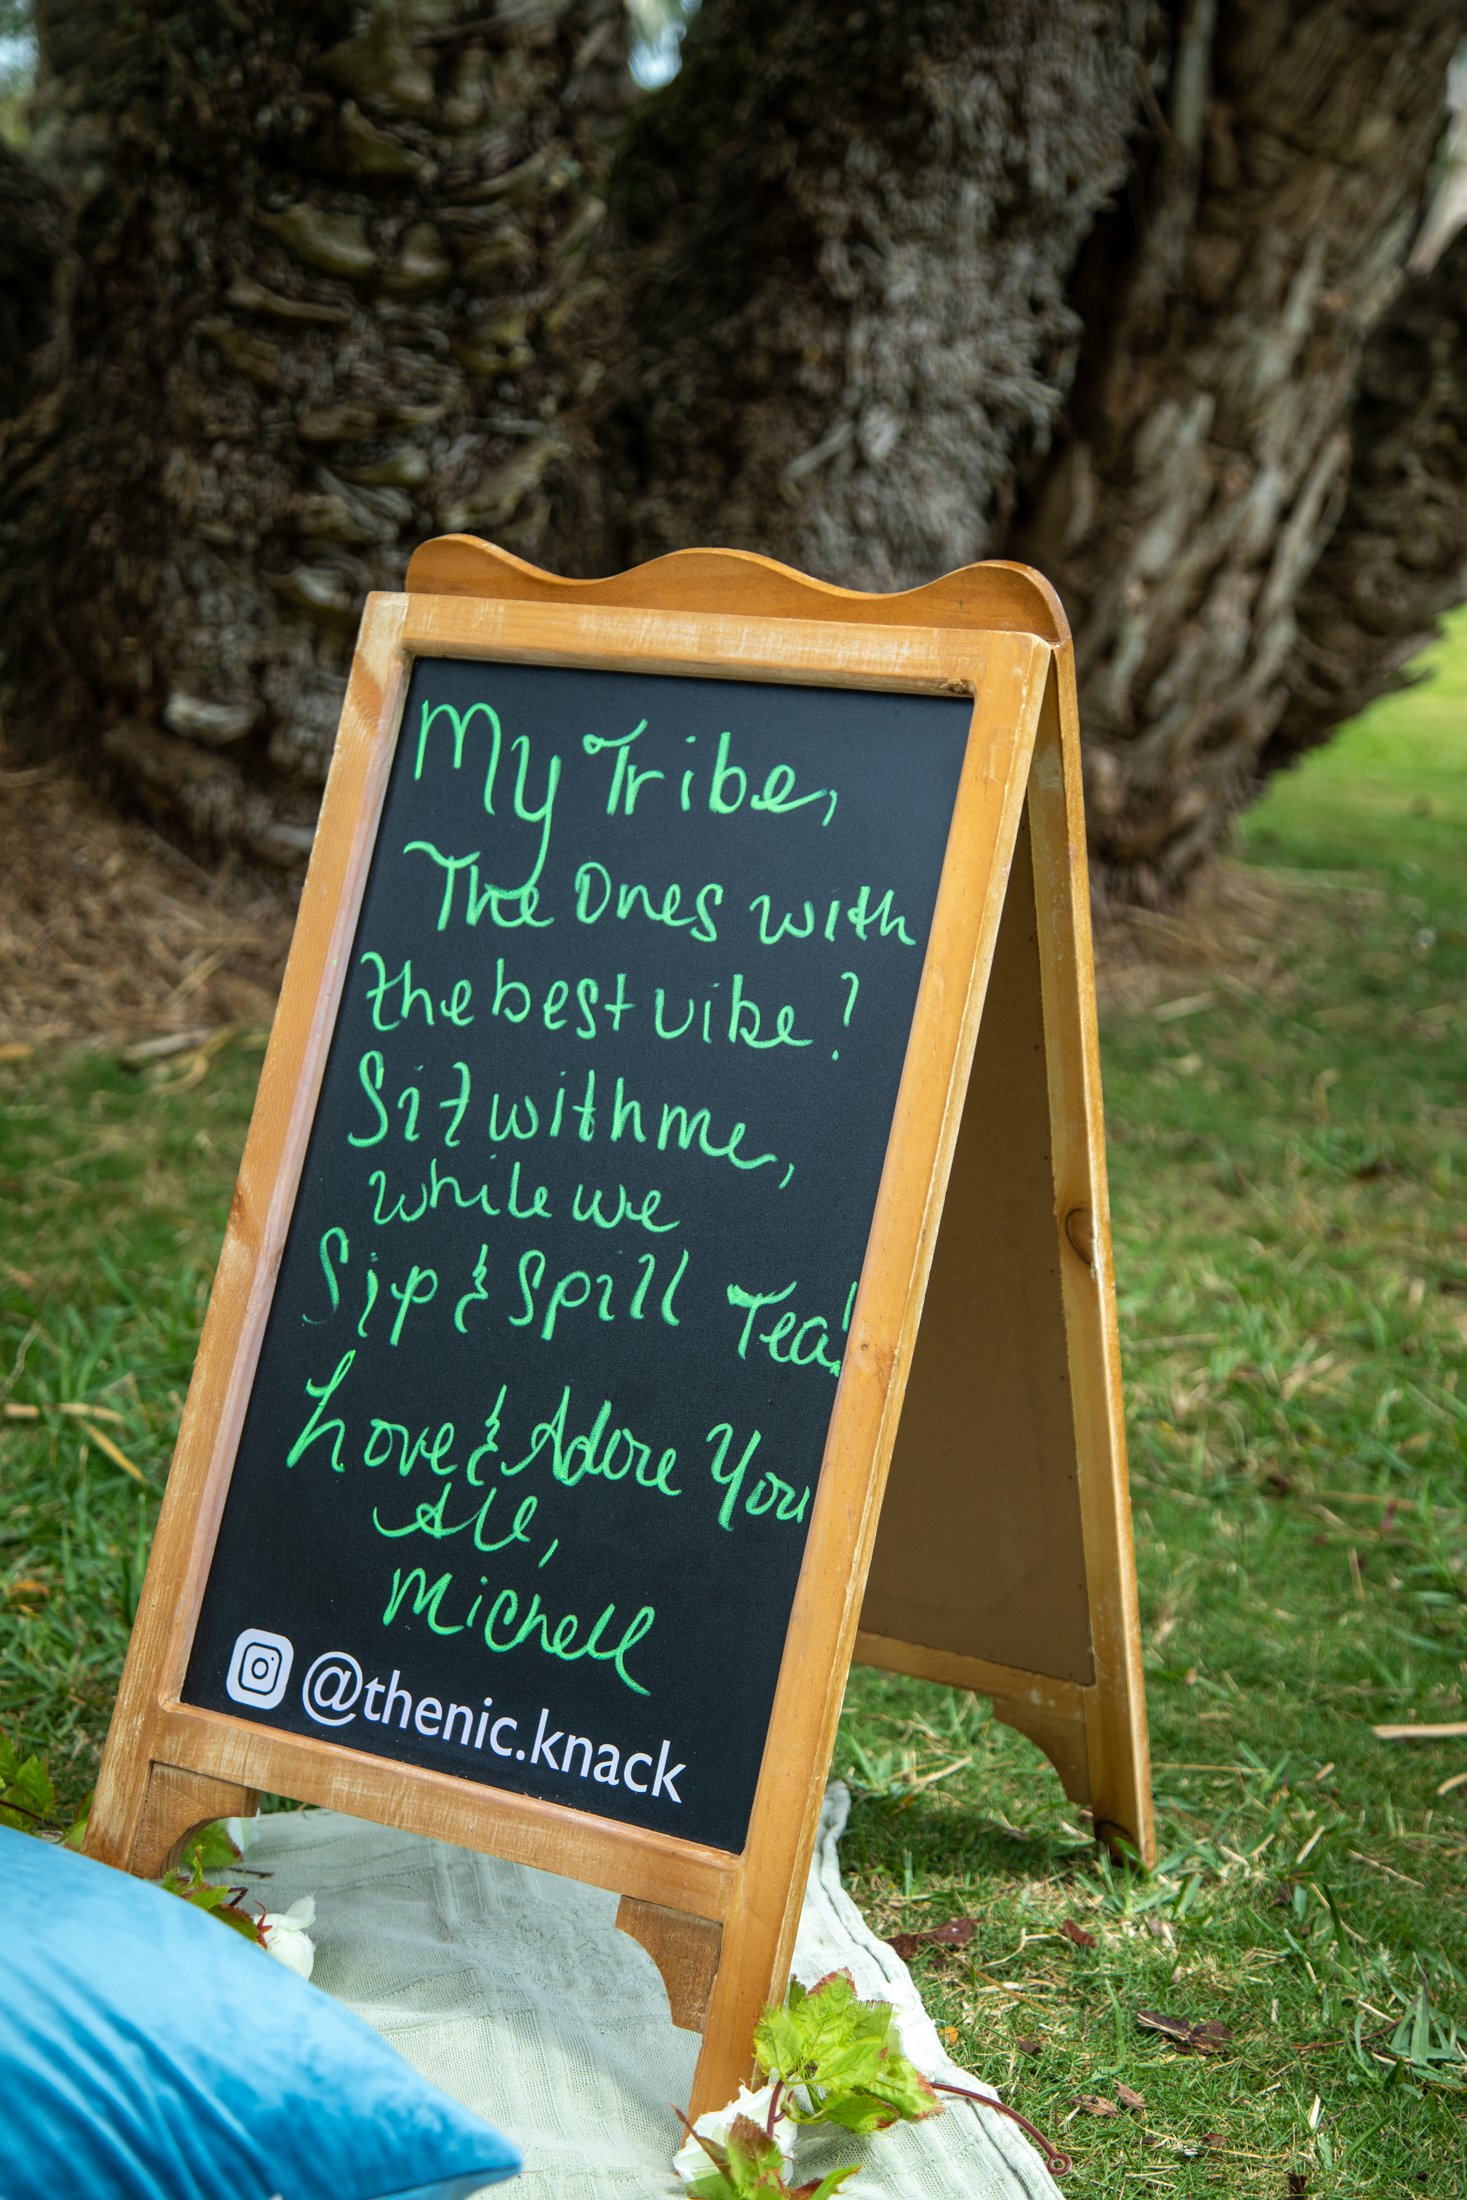 My Tribe,
The Ones with
the best vibe?
Sit with me,
while we
Sip & Spill Tea!
Love & Adore You
All,
Michell
@thenic.knack